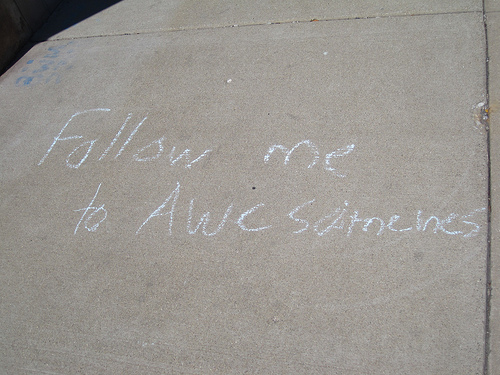 Follow me
to Awesomenes